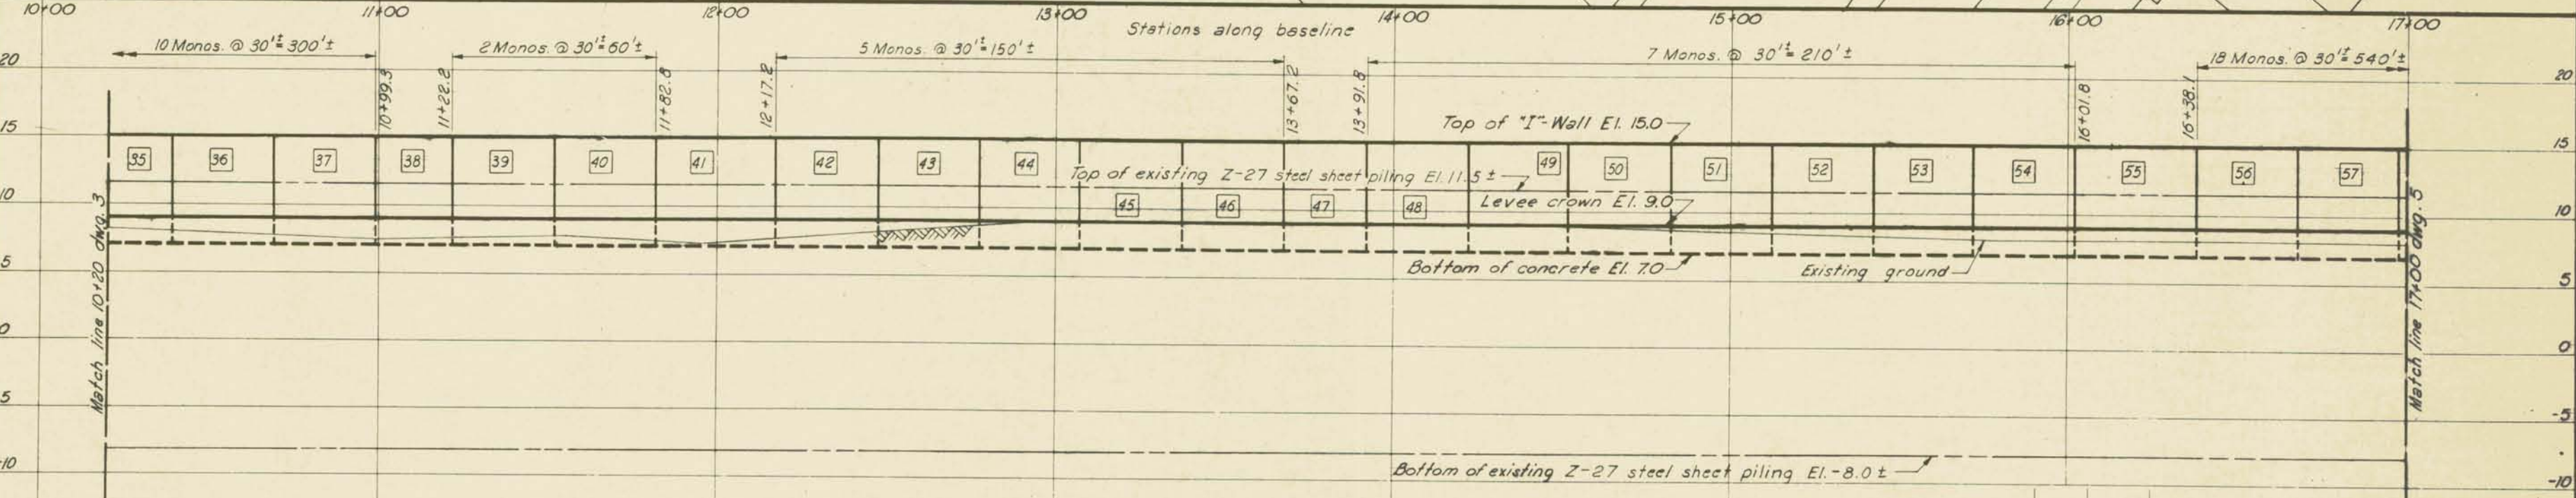 10+00 11+00 12+00 13+00 14+00 15+00 16+00 17+00
Stations along baseline
10 Monos. @ 30'±=300'± 2 Monos. @ 30'±=60'± 5 Monos. @ 30'±=150'± 7 Monos. @ 30'±=210'± 18 Monos. @ 30'±=540'±
20 20
10+99.3 11+22.8 11+82.8 12+17.2 13+67.2 13+91.8 16+01.8 16+38.1
Top of "I"-Wall El. 15.0
15 15
35 36 37 38 39 40 41 42 43 44 49 50 51 52 53 54 55 56 57
Top of existing Z-27 steel sheet piling El. 11.5 ±
10 10
45 46 47 48
Levee crown El. 9.0
Bottom of concrete El. 7.0
Existing ground
5 5
0 0
5 -5
Match line 10+20 dwg. 3
Match line 17+00 dwg. 5
Bottom of existing Z-27 steel sheet piling El.-8.0 ±
-10 -10